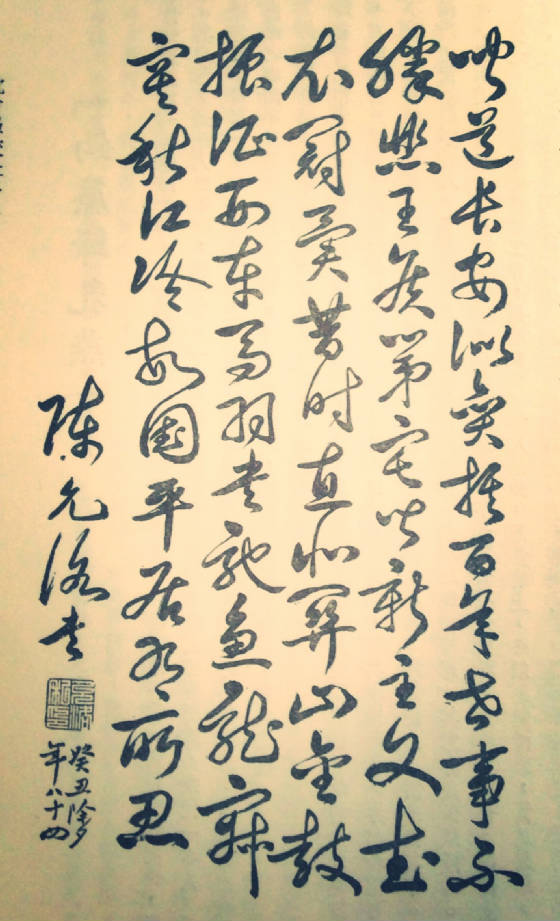 聞道長安似奕棋百年世事不
勝悲王侯第宅皆新主文武
衣冠異昔時直北關山金鼓
振征西車馬羽書馳魚龍寂
寞秋江冷故國平居有所思
陳允洛書
癸丑除夕
年八十四